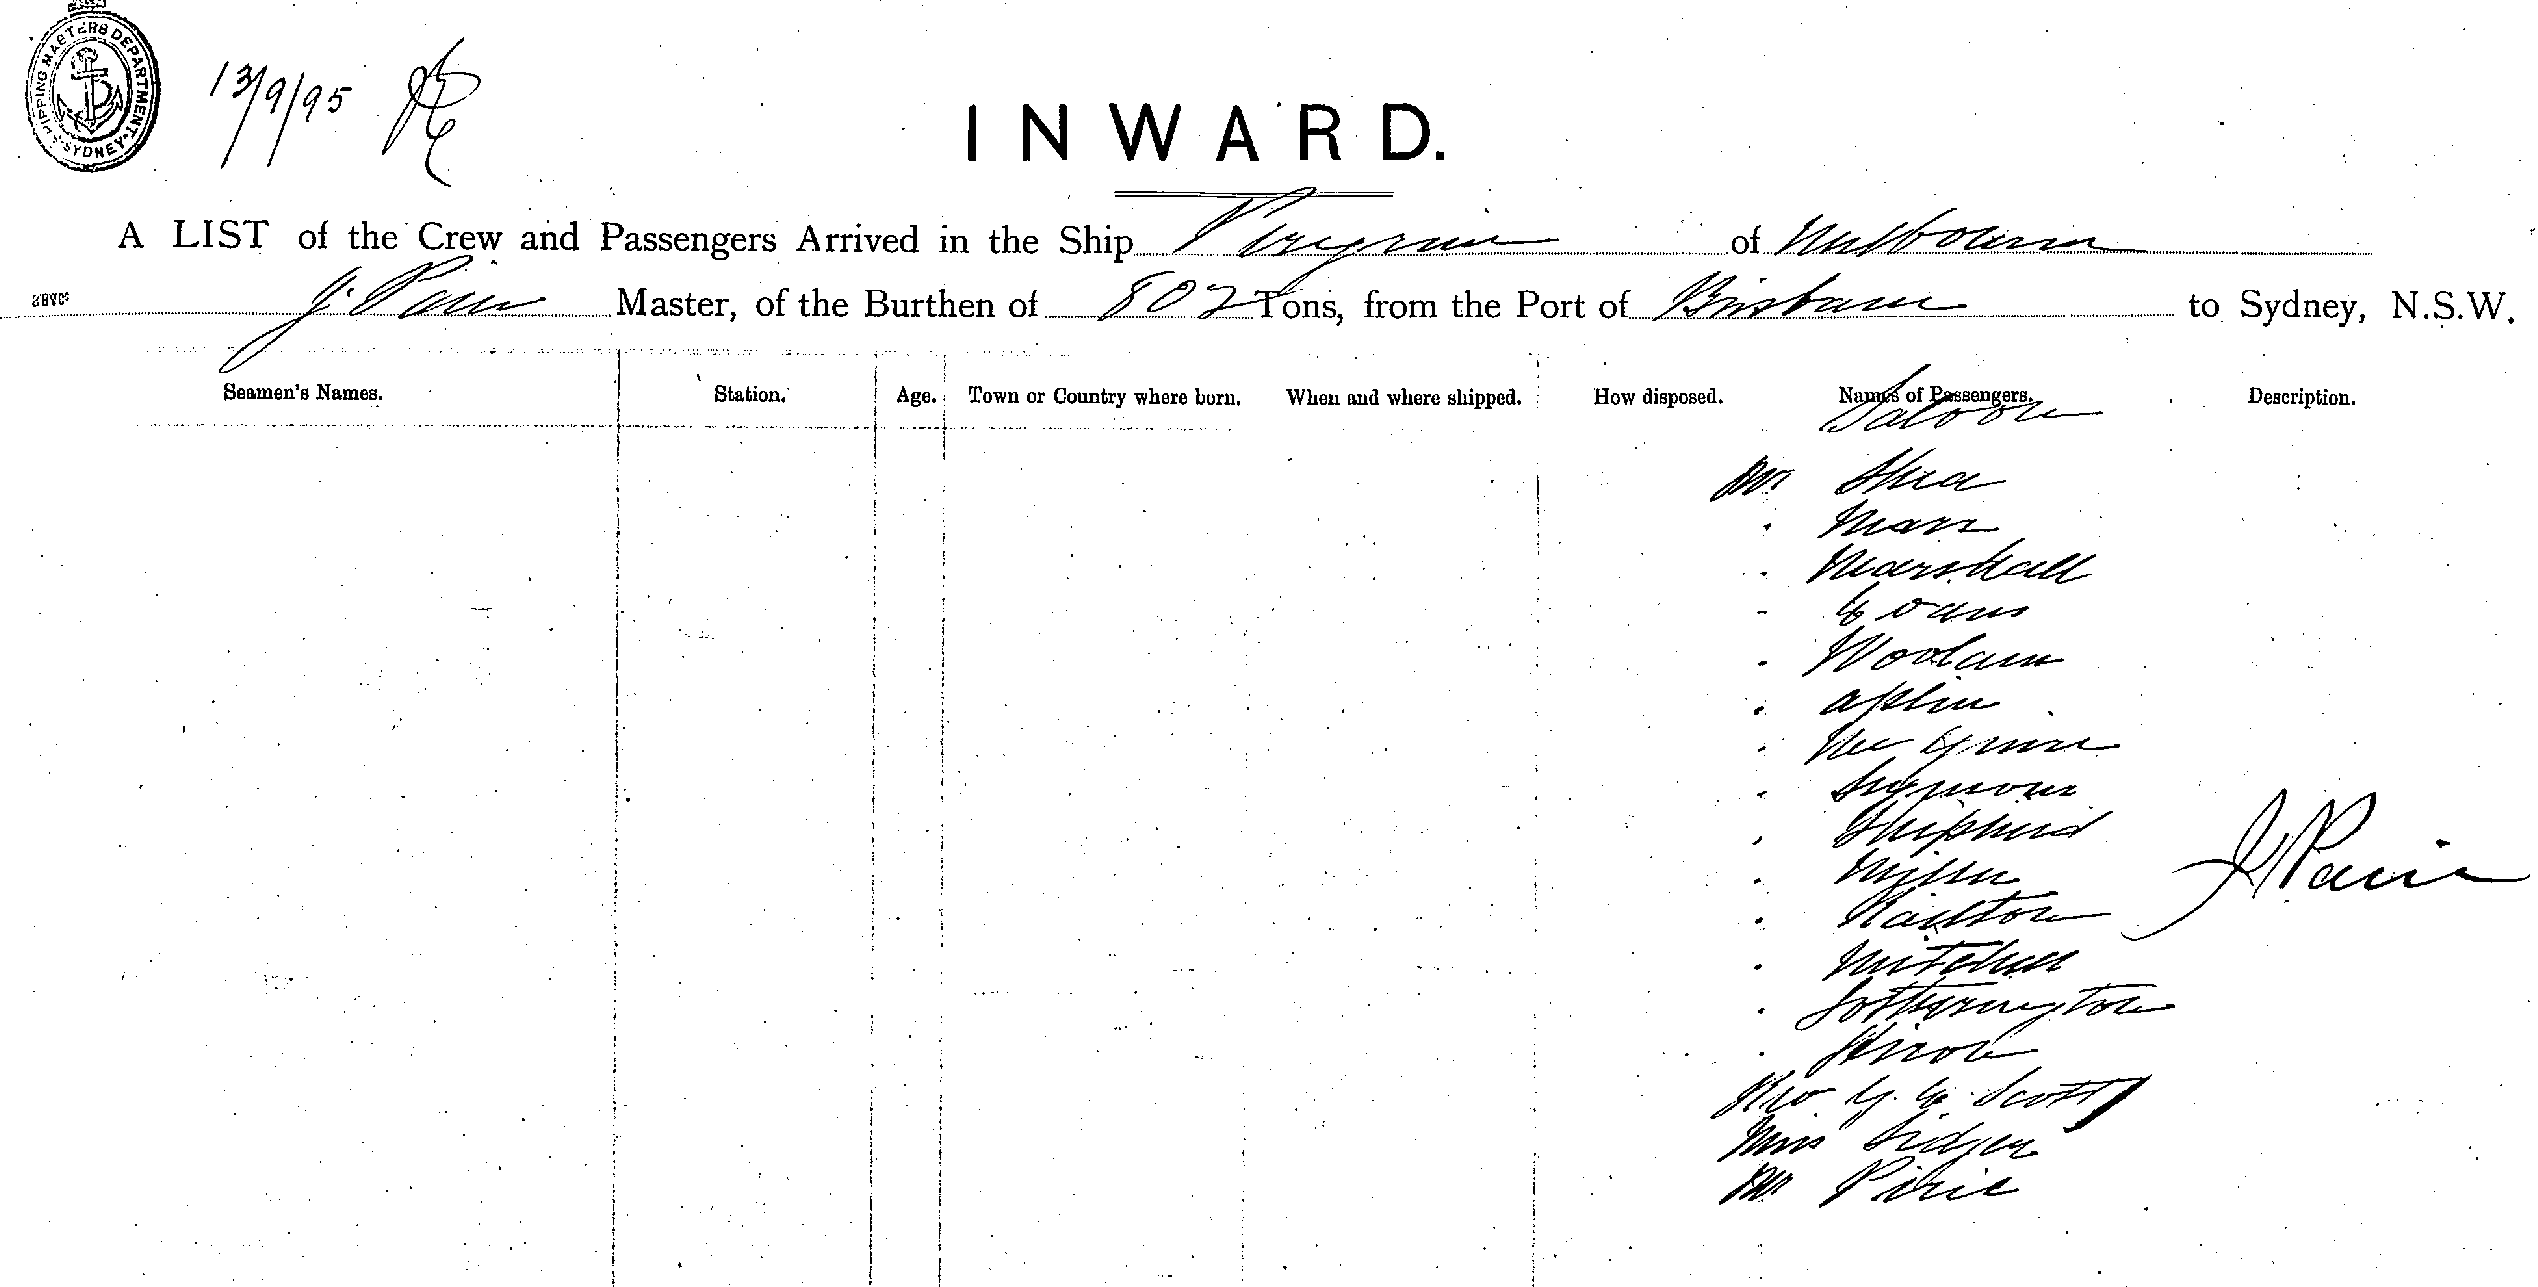 SHIPPING MASTERS DEPARTMENT SYDNEY
13/9/95
INWARD.
A LIST of the Crew and Passengers Arrived in the Ship Peregrine of Melbourne
J. Pain Master, of the Burthen of 802 Tons, from the Port of Brisbane to Sydney, N.S.W.
Seamen's Names. Station. Age. Town or Country where born. When and where shipped. How disposed. Names of Passengers. Description.
Saloon
Mr Shea
" Marr
" Marshall
" Evans
" Woolam
" Aplin
"
" Seymour
" Shepherd
"
" Railton
" Mitchell
" Sotherington
"
Rev G. E. Scott
Miss
Mr Pirie
J Pain